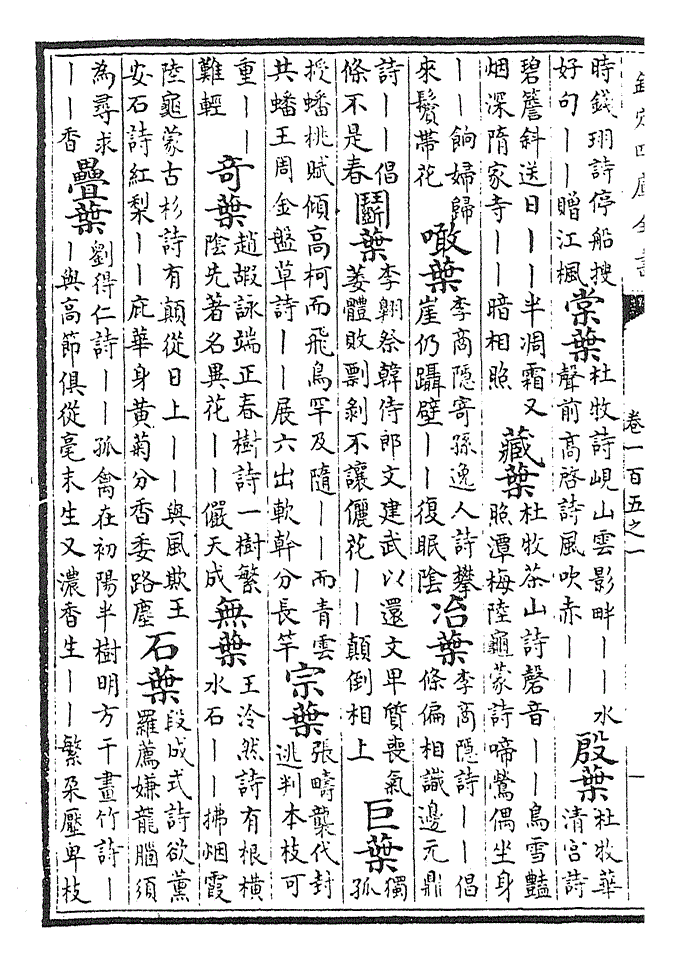 欽定四庫全書
卷一百五之一
時錢珝詩停船搜
好句——贈江楓
棠葉
杜牧詩峴山雲影畔——水
聲前高啓詩風吹赤——
殷葉
杜牧華
清宮詩
碧簷斜送日——半凋霜又
烟深隋家寺——暗相照
藏葉
杜牧茶山詩磬音——鳥雪豔
照潭梅陸龜蒙詩啼鶯偶坐身
——餉婦歸
來鬢帶花
噉葉
李商隱寄孫逸人詩攀
崖仍躡壁——復眠陰
冶葉
李商隱詩——倡
條偏相識邊元鼎
詩——倡
條不是春
鬭葉
李翺祭韓侍郎文建武以還文卑質喪氣
萎體敗剽剝不讓儷花——顛倒相上
巨葉
獨
孤
授蟠桃賦傾高柯而飛鳥罕及隨——而青雲
共蟠王周金盤草詩——展六出軟幹分長竿
宗葉
張疇襲代封
逃判本枝可
重——
難輕
奇葉
趙嘏詠端正春樹詩一樹繁
陰先著名異花——儼天成
無葉
王泠然詩有根橫
水石——拂烟霞
陸龜蒙古杉詩有顛從日上——與風欺王
安石詩紅梨——庇華身黃菊分香委路塵
石葉
段成式詩欲薰
羅薦嫌龍腦須
為尋求
——香
疊葉
劉得仁詩——孤禽在初陽半樹明方干畫竹詩—
—與高節俱從毫末生又濃香生——繁朶壓卑枝